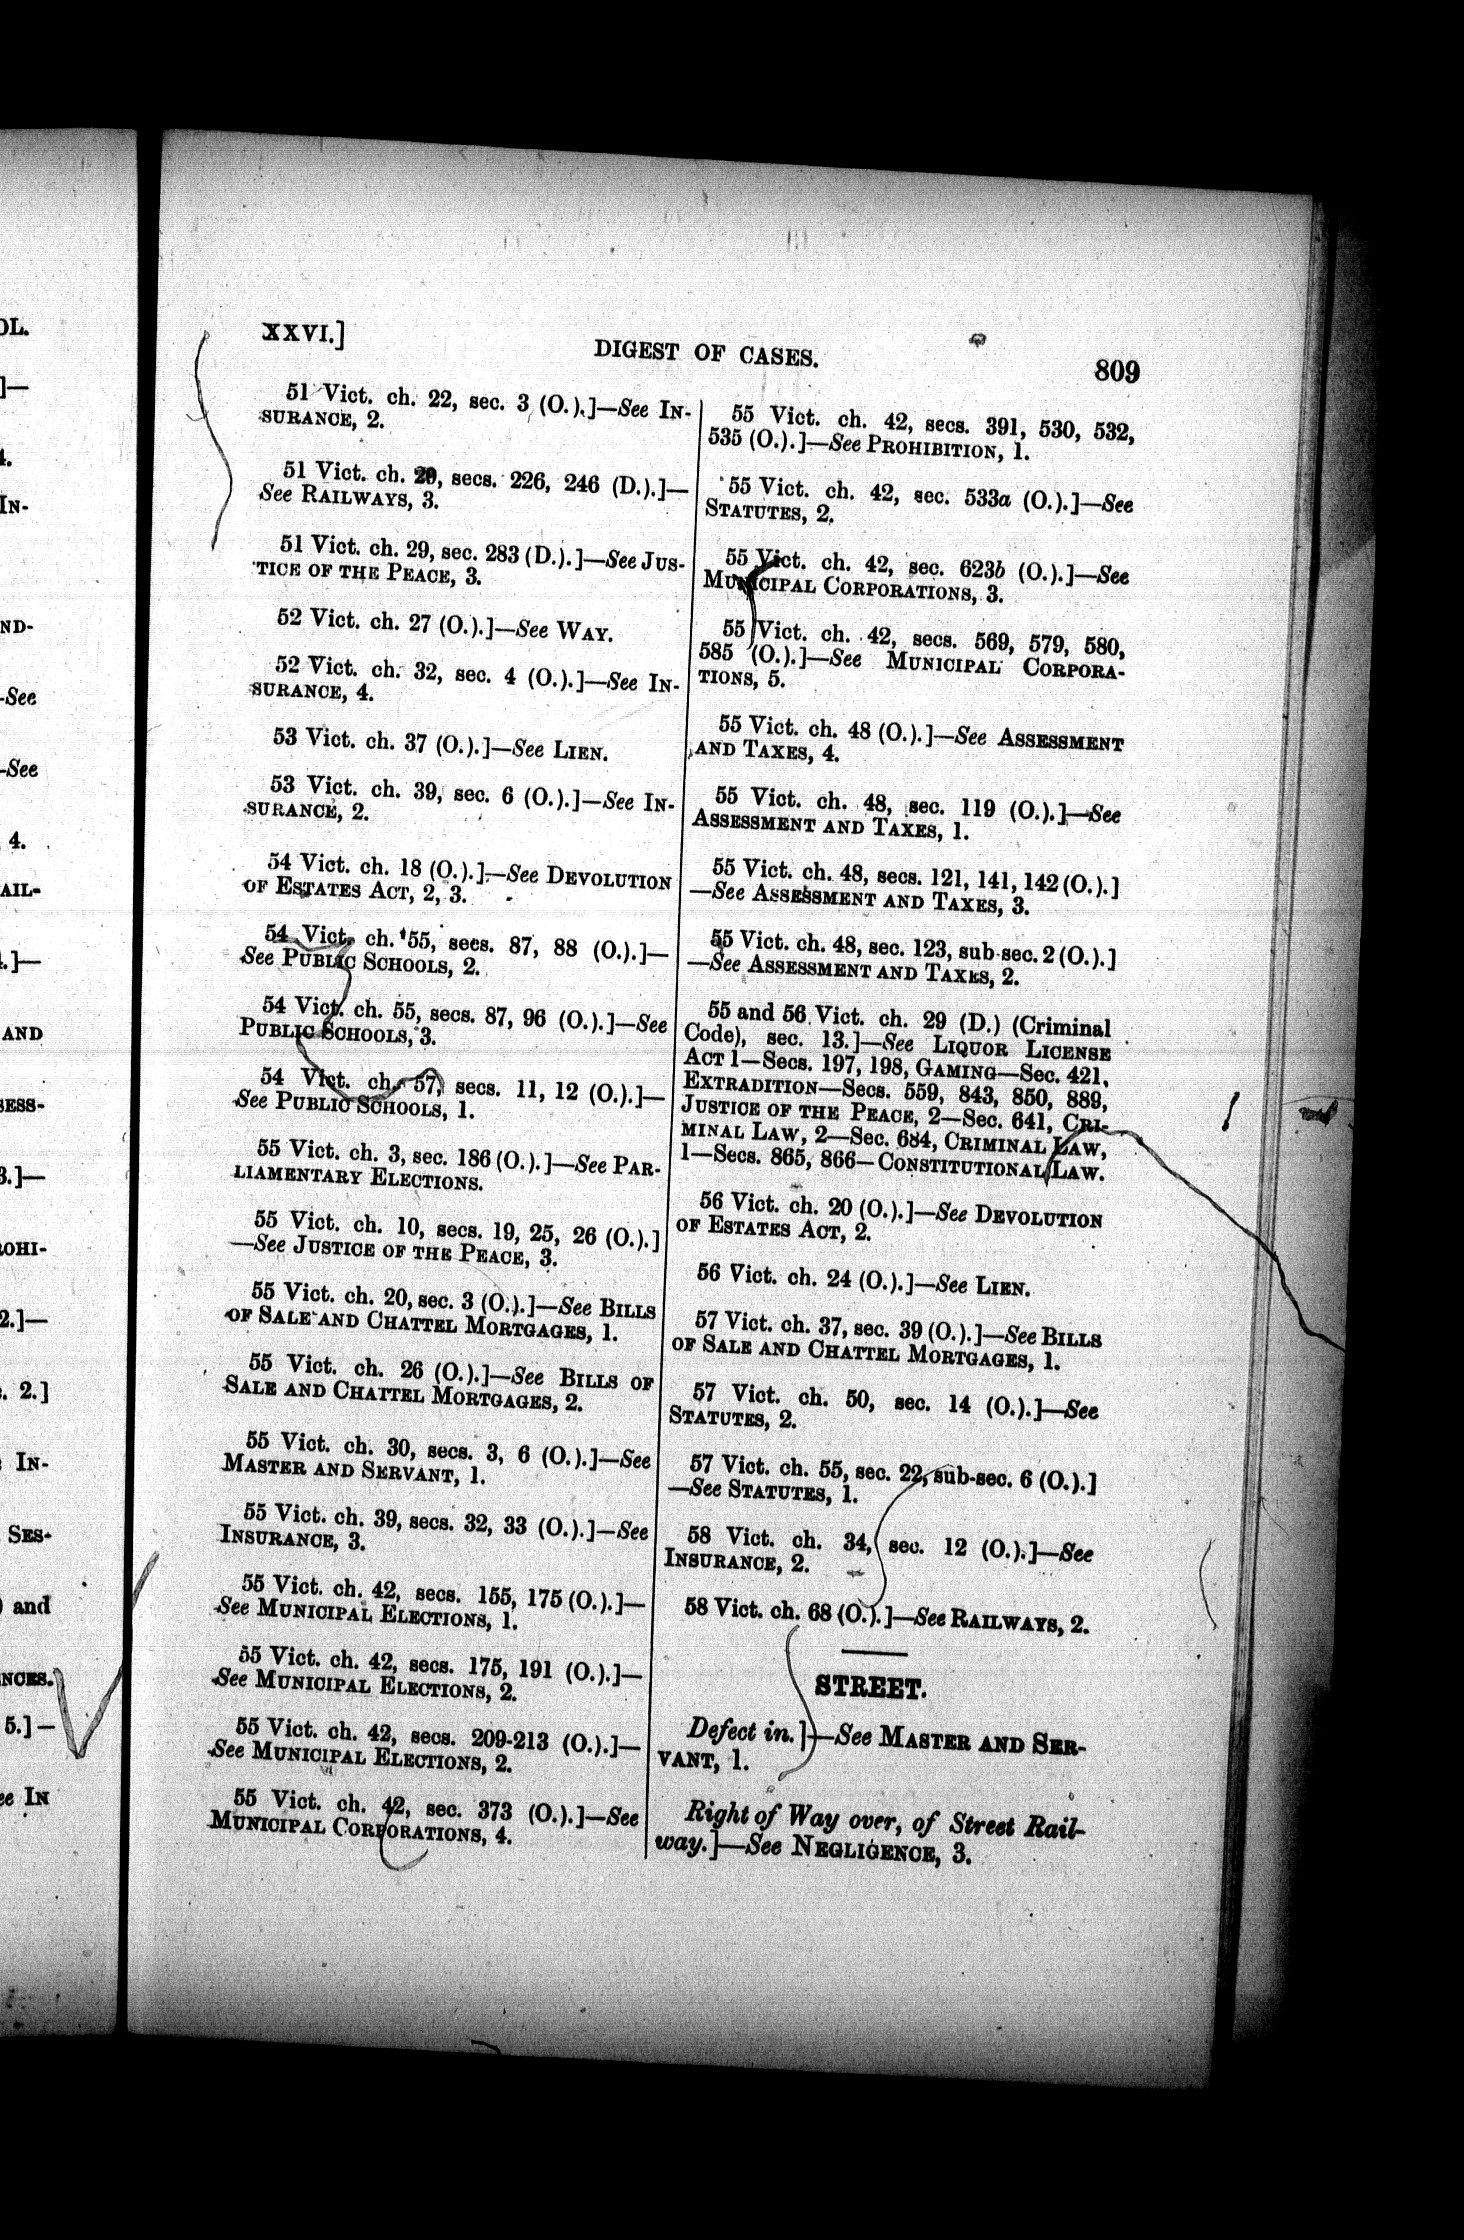 XXVI.]
DIGEST OF CASES.
809
51 Vict. ch. 22, sec. 3 (O.).]—See IN-
SURANCE, 2.
51 Vict. ch. 29, secs. 226, 246 (D.).]—
See RAILWAYS, 3.
51 Vict. ch. 29, sec. 283 (D.).]—See JUS-
TICE OF THE PEACE, 3.
52 Vict. ch. 27 (O.).]—See WAY.
52 Vict. ch. 32, sec. 4 (O.).]—See IN-
SURANCE, 4.
53 Vict. ch. 37 (O.).]—See LIEN.
53 Vict. ch. 39, sec. 6 (O.).]—See IN-
SURANCE, 2.
54 Vict. ch. 18 (O.).]—See DEVOLUTION
OF ESTATES ACT, 2, 3.
54 Vict. ch. 55, secs. 87, 88 (O.).]—
See PUBLIC SCHOOLS, 2.
54 Vict. ch. 55, secs. 87, 96 (O.).]—See
PUBLIC SCHOOLS, 3.
54 Vict. ch. 57, secs. 11, 12 (O.).]—
See PUBLIC SCHOOLS, 1.
55 Vict. ch. 3, sec. 186 (O.).]—See PAR-
LIAMENTARY ELECTIONS.
55 Vict. ch. 10, secs. 19, 25, 26 (O.).]
—See JUSTICE OF THE PEACE, 3.
55 Vict. ch. 20, sec. 3 (O.).]—See BILLS
OF SALE AND CHATTEL MORTGAGES, 1.
55 Vict. ch. 26 (O.).]—See BILLS OF
SALE AND CHATTEL MORTGAGES, 2.
55 Vict. ch. 30, secs. 3, 6 (O.).]—See
MASTER AND SERVANT, 1.
55 Vict. ch. 39, secs. 32, 33 (O.).]—See
INSURANCE, 3.
55 Vict. ch. 42, secs. 155, 175 (O.).]—
See MUNICIPAL ELECTIONS, 1.
55 Vict. ch. 42, secs. 175, 191 (O.).]—
See MUNICIPAL ELECTIONS, 2.
55 Vict. ch. 42, secs. 209-213 (O.).]—
See MUNICIPAL ELECTIONS, 2.
55 Vict. ch. 42, sec. 373 (O.).]—See
MUNICIPAL CORPORATIONS, 4.
55 Vict. ch. 42, secs. 391, 530, 532,
535 (O.).]—See PROHIBITION, 1.
55 Vict. ch. 42, sec. 533a (O.).]—See
STATUTES, 2.
55 Vict. ch. 42, sec. 623b (O.).]—See
MUNICIPAL CORPORATIONS, 3.
55 Vict. ch. 42, secs. 569, 579, 580,
585 (O.).]—See MUNICIPAL CORPORA-
TIONS, 5.
55 Vict. ch. 48 (O.).]—See ASSESSMENT
AND TAXES, 4.
55 Vict. ch. 48, sec. 119 (O.).]—See
ASSESSMENT AND TAXES, 1.
55 Vict. ch. 48, secs. 121, 141, 142 (O.).]
—See ASSESSMENT AND TAXES, 3.
55 Vict. ch. 48, sec. 123, sub-sec. 2 (O.).]
—See ASSESSMENT AND TAXES, 2.
55 and 56 Vict. ch. 29 (D.) (Criminal
Code), sec. 13.]—See LIQUOR LICENSE
ACT 1—Secs. 197, 198, GAMING—Sec. 421,
EXTRADITION—Secs. 559, 843, 850, 889,
JUSTICE OF THE PEACE, 2—Sec. 641, CRI-
MINAL LAW, 2—Sec. 684, CRIMINAL LAW,
1—Secs. 865, 866—CONSTITUTIONAL LAW.
56 Vict. ch. 20 (O.).]—See DEVOLUTION
OF ESTATES ACT, 2.
56 Vict. ch. 24 (O.).]—See LIEN.
57 Vict. ch. 37, sec. 39 (O.).]—See BILLS
OF SALE AND CHATTEL MORTGAGES, 1.
57 Vict. ch. 50, sec. 14 (O.).]—See
STATUTES, 2.
57 Vict. ch. 55, sec. 22, sub-sec. 6 (O.).]
—See STATUTES, 1.
58 Vict. ch. 34, sec. 12 (O.).]—See
INSURANCE, 2.
58 Vict. ch. 68 (O.).]—See RAILWAYS, 2.
STREET.
Defect in.]—See MASTER AND SER-
VANT, 1.
Right of Way over, of Street Rail-
way.]—See NEGLIGENCE, 3.